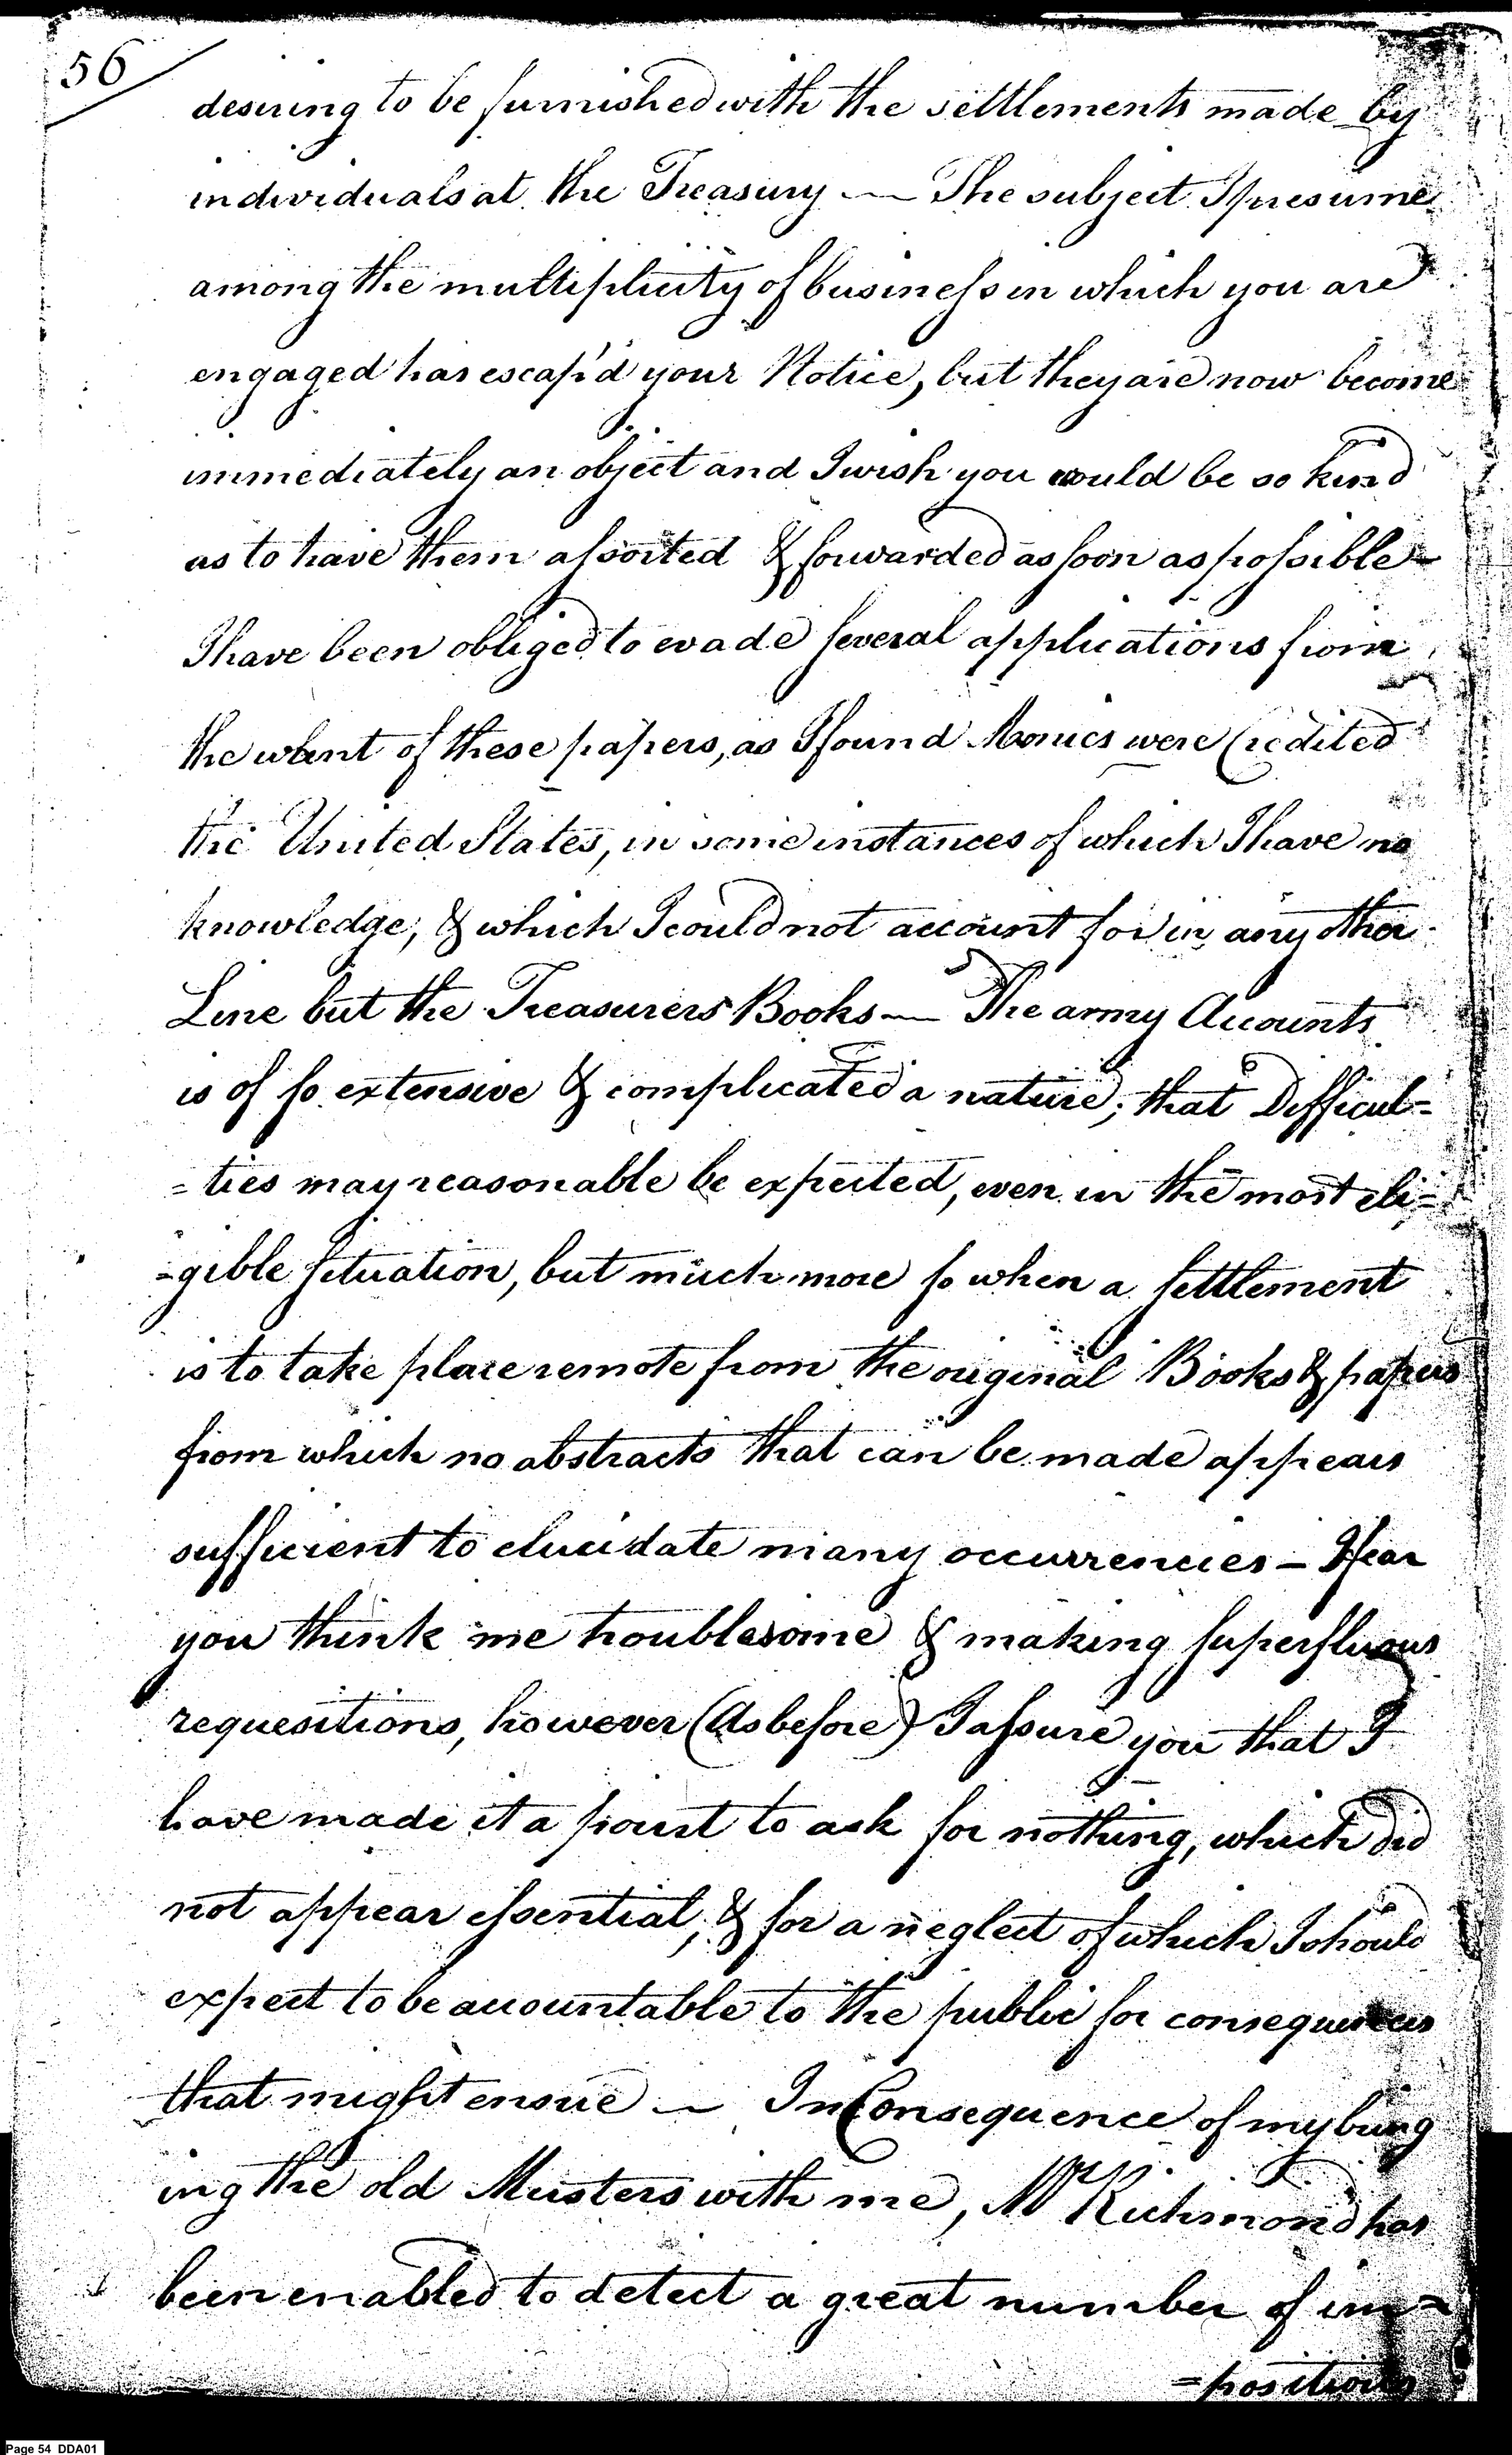 56
desiring to be furnished with the settlements made by
individuals at the Treasury — The subject I presume
among the multiplicity of business in which you are
engaged has escap'd your Notice, but they are now become
immediately an object and I wish you would be so kind
as to have them assorted & forwarded as soon as possible =
I have been obliged to evade several applications from
the want of these papers, as I found Monies were Credited
the United States, in some instances of which I have no
knowledge, & which I could not account for in any other
Line but the Treasurers Books — The army Accounts
is of so extensive & complicated a nature; that Difficul=
=ties may reasonable be expected, even in the most eli=
=gible situation, but much more so when a settlement
is to take place remote from the original Books & papers
from which no abstracts that can be made appears
sufficient to elucidate many occurrencies — I fear
you think me troublesome & making superfluous
requesitions, however (As before) I assure you that I
have made it a point to ask for nothing, which did
not appear essential, & for a neglect of which I should
expect to be accountable to the public for consequences
that might ensue — In Consequence of my bring
ing the old Musters with me, Mr Richmond has
been enabled to detect a great number of im=
=positions
Page 54 DDA01